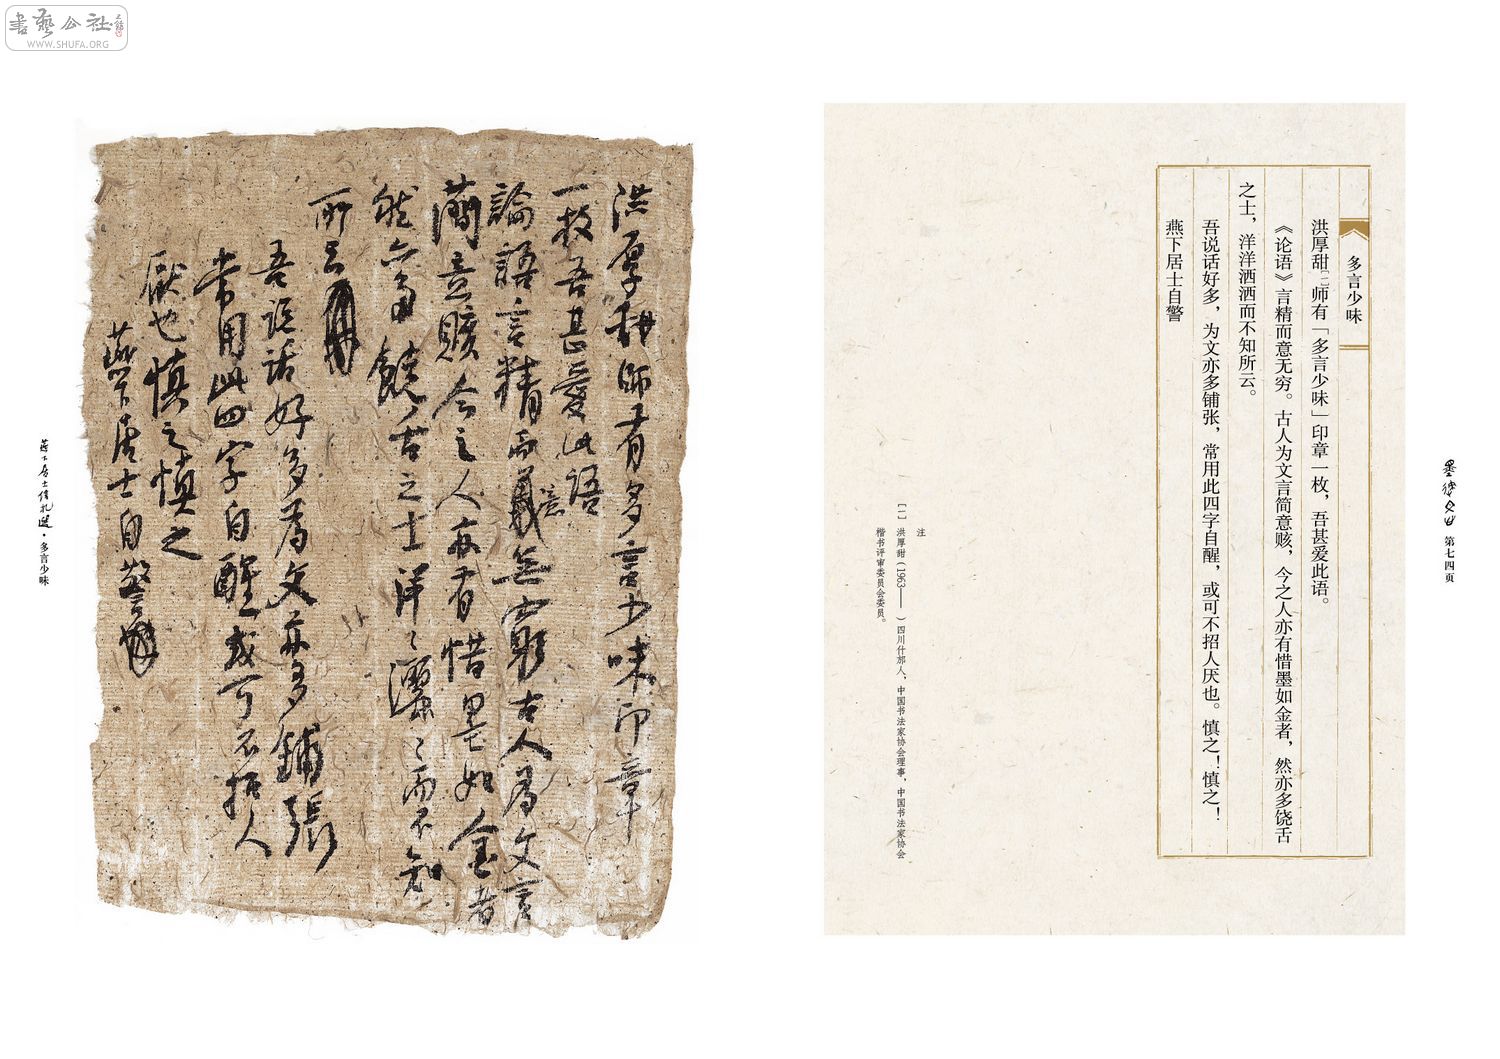 書藝公社
WWW.SHUFA.ORG
多言少味
洪厚甜[一]师有「多言少味」印章一枚，吾甚爱此语。
《论语》言精而意无穷。古人为文言简意赅，今之人亦有惜墨如金者，然亦多饶舌
之士，洋洋洒洒而不知所云。
吾说话好多，为文亦多铺张，常用此四字自醒，或可不招人厌也。慎之！慎之！
燕下居士自警
注
[一] 洪厚甜（1963——　）四川什邡人，中国书法家协会理事，中国书法家协会
楷书评审委员会委员。
第七四页
洪厚甜師有多言少味印章
一枚吾甚愛此語
論語言精而義意無窮古人為文言
簡意賅今之人亦有惜墨如金者
然亦多饒舌之士洋〻灑〻而不知
所云
吾說話好多為文亦多鋪張
常用此四字自醒或可不招人
厭也慎之慎之
燕下居士自警
燕下居士信札选·多言少味